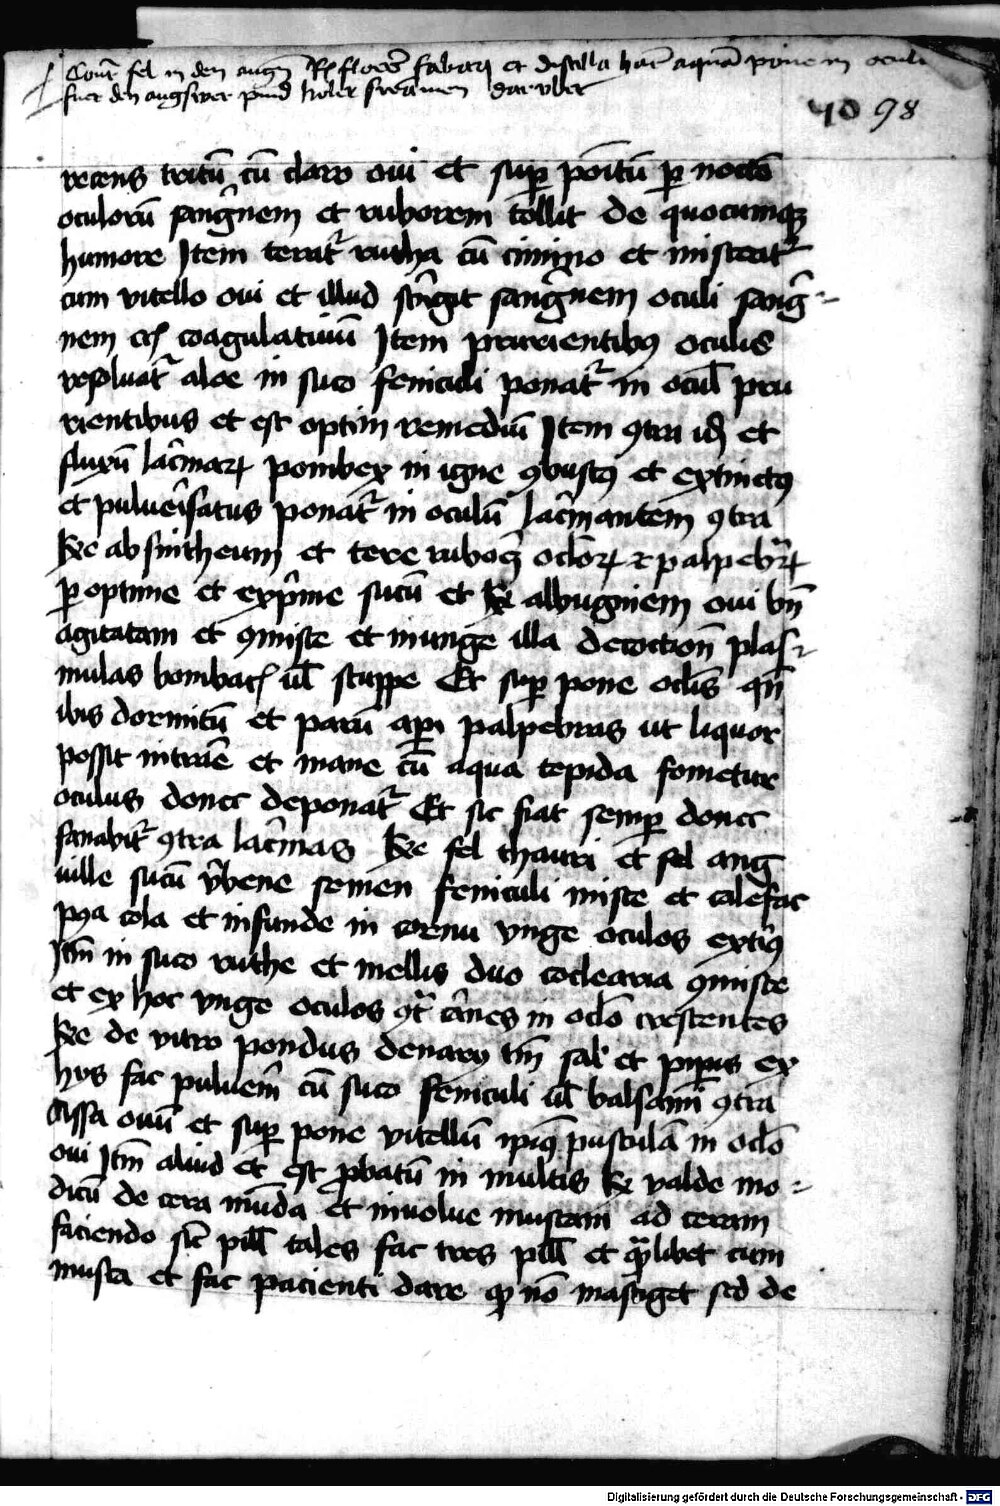 Contra fel in den augen Rx flores fabarum et distilla hanc aquam pone in oculum
fuer den augswer pind holer darvber
40 98
recens tritū cū claro oui et sup poītū p noctē
oculorū sang̃nem et ruborem tollit de quocumq
humore Item terat᷑ rutha cū cimino et misceat᷑
cum vitello oui et illud stringit sang̃nem oculi sang̃-
nem coagulatiuū Item prurientibꝰ oculis
resoluat᷑ aloe in suco feniculi ponat᷑ in ocul̄ pru
rientibus et est optim remediū Item ꝯtra id et
fluxū lac̄maꝝ pombex in igne ꝯbustꝰ et extinctꝰ
et puluerisatus ponat᷑ in oculū lac̄mantem ꝯtra
Rec absintheum et tere oc̄loꝝ et palpebraꝝ
p optime et exprime sucū et Rec albuginem oui bn̄
agitatam et ꝯmisce et inunge illa decoction̄ plas-
mulas bombac̄ ul̄ stuppe Et sup pone oc̄lis qn̄
ibis dormitū et parū api palpebras ut liquor
possit intrare et mane cū aqua tepida fometur
oculus donec deponat᷑ Et sic fiat semp donec
sanabit᷑ ꝯtra lac̄mas Rec fel thauri et fel ang
uille sucū v̄bene semen feniculi misce et calefac
pꝰa cola et infunde in cornu vnge oculos extiꝰ
Itm̄ in suco ruthe et mellis duo coclearia ꝯmisce
et ex hoc vnge oculos ꝯt᷑ carnes in oc̄lo crescentes
Rec de vitro pondus denarij tm̄ sal et pipis ex
hys fac puluerem cū suco feniculi ul̄ balsami ꝯtra
Assa ouū et sup pone vitellū pustulā in oc̄lo
oui Itm̄ aliud et est p̄batū in multis Rec valde mo-
dicū de cera mūda et inuolue muscam ad ceram
faciendo sic pill̄ tales fac tres pill̄ et quālibet cum
musca et fac pacienti dare qꝫ nō mastiget sed de
Digitalisierung gefördert durch die Deutsche Forschungsgemeinschaft - DFG